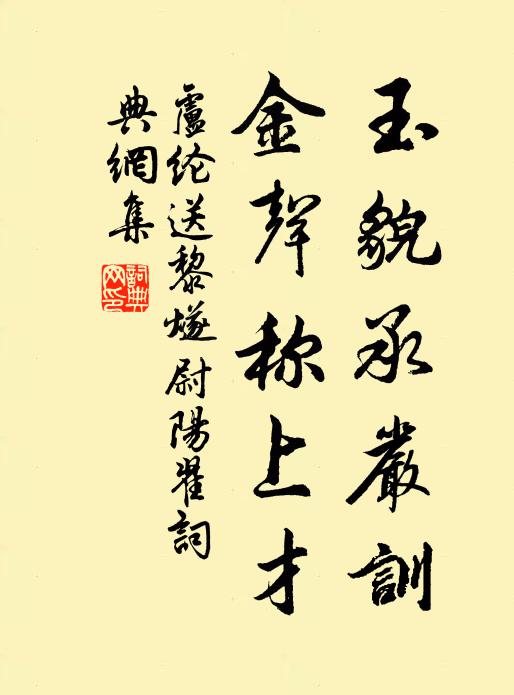 玉貌承嚴訓
金聲称上才
盧纶送黎燧尉陽翟詞
典網集
詞典
网印